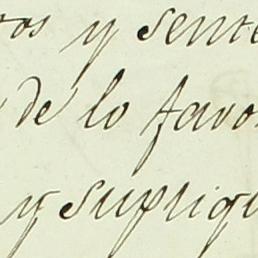 tos y sente
de lo favo
y supliqu